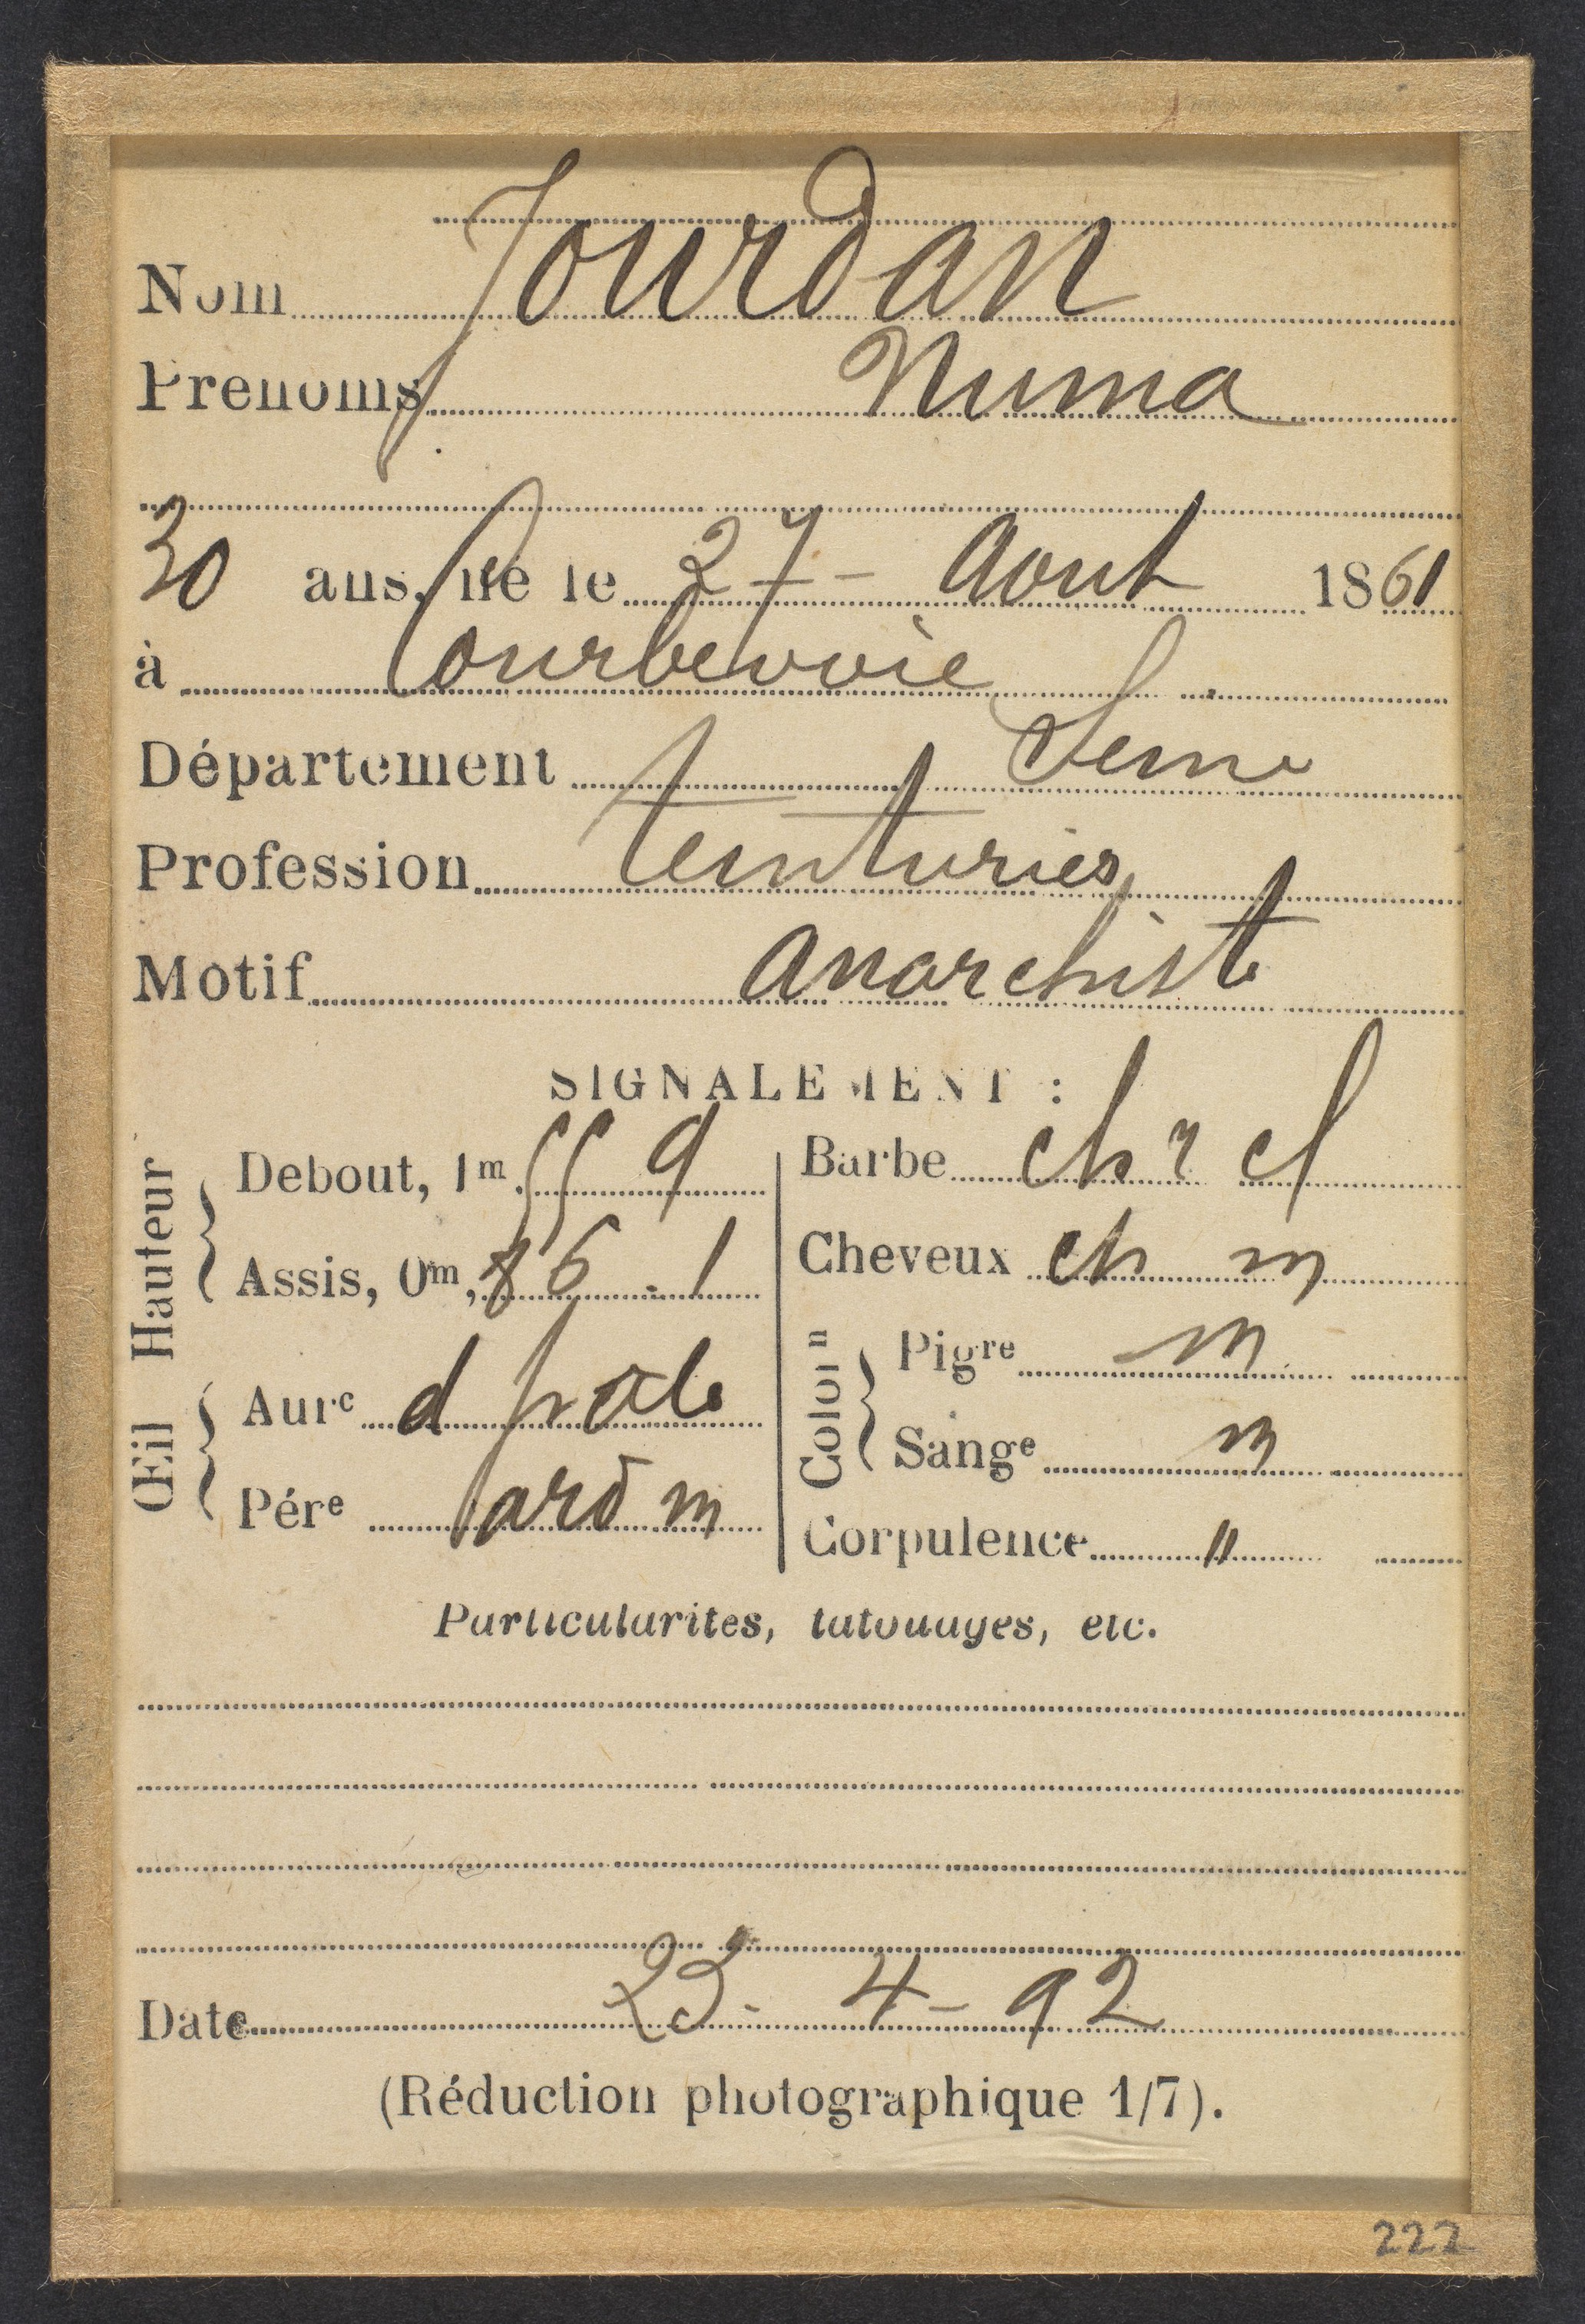 Nom Jourdan
Prénoms Numa
30 ans, né le 27 - Aout 1861
à Courbevoie
Département Seine
Profession teinturier
Motif anarchiste
SIGNALEMENT :
Hauteur
Debout, 1m. 55 9
Assis, 0m, 86.1
Œil
Aurᶜ d pâle
Pérᵉ ard m
Barbe ch r cl
Cheveux ch m
Colorⁿ
Pigʳᵉ m
Sangᵉ m
Corpulence "
Particularités, tatouages, etc.
Date 23 - 4 - 92
(Réduction photographique 1/7).
222